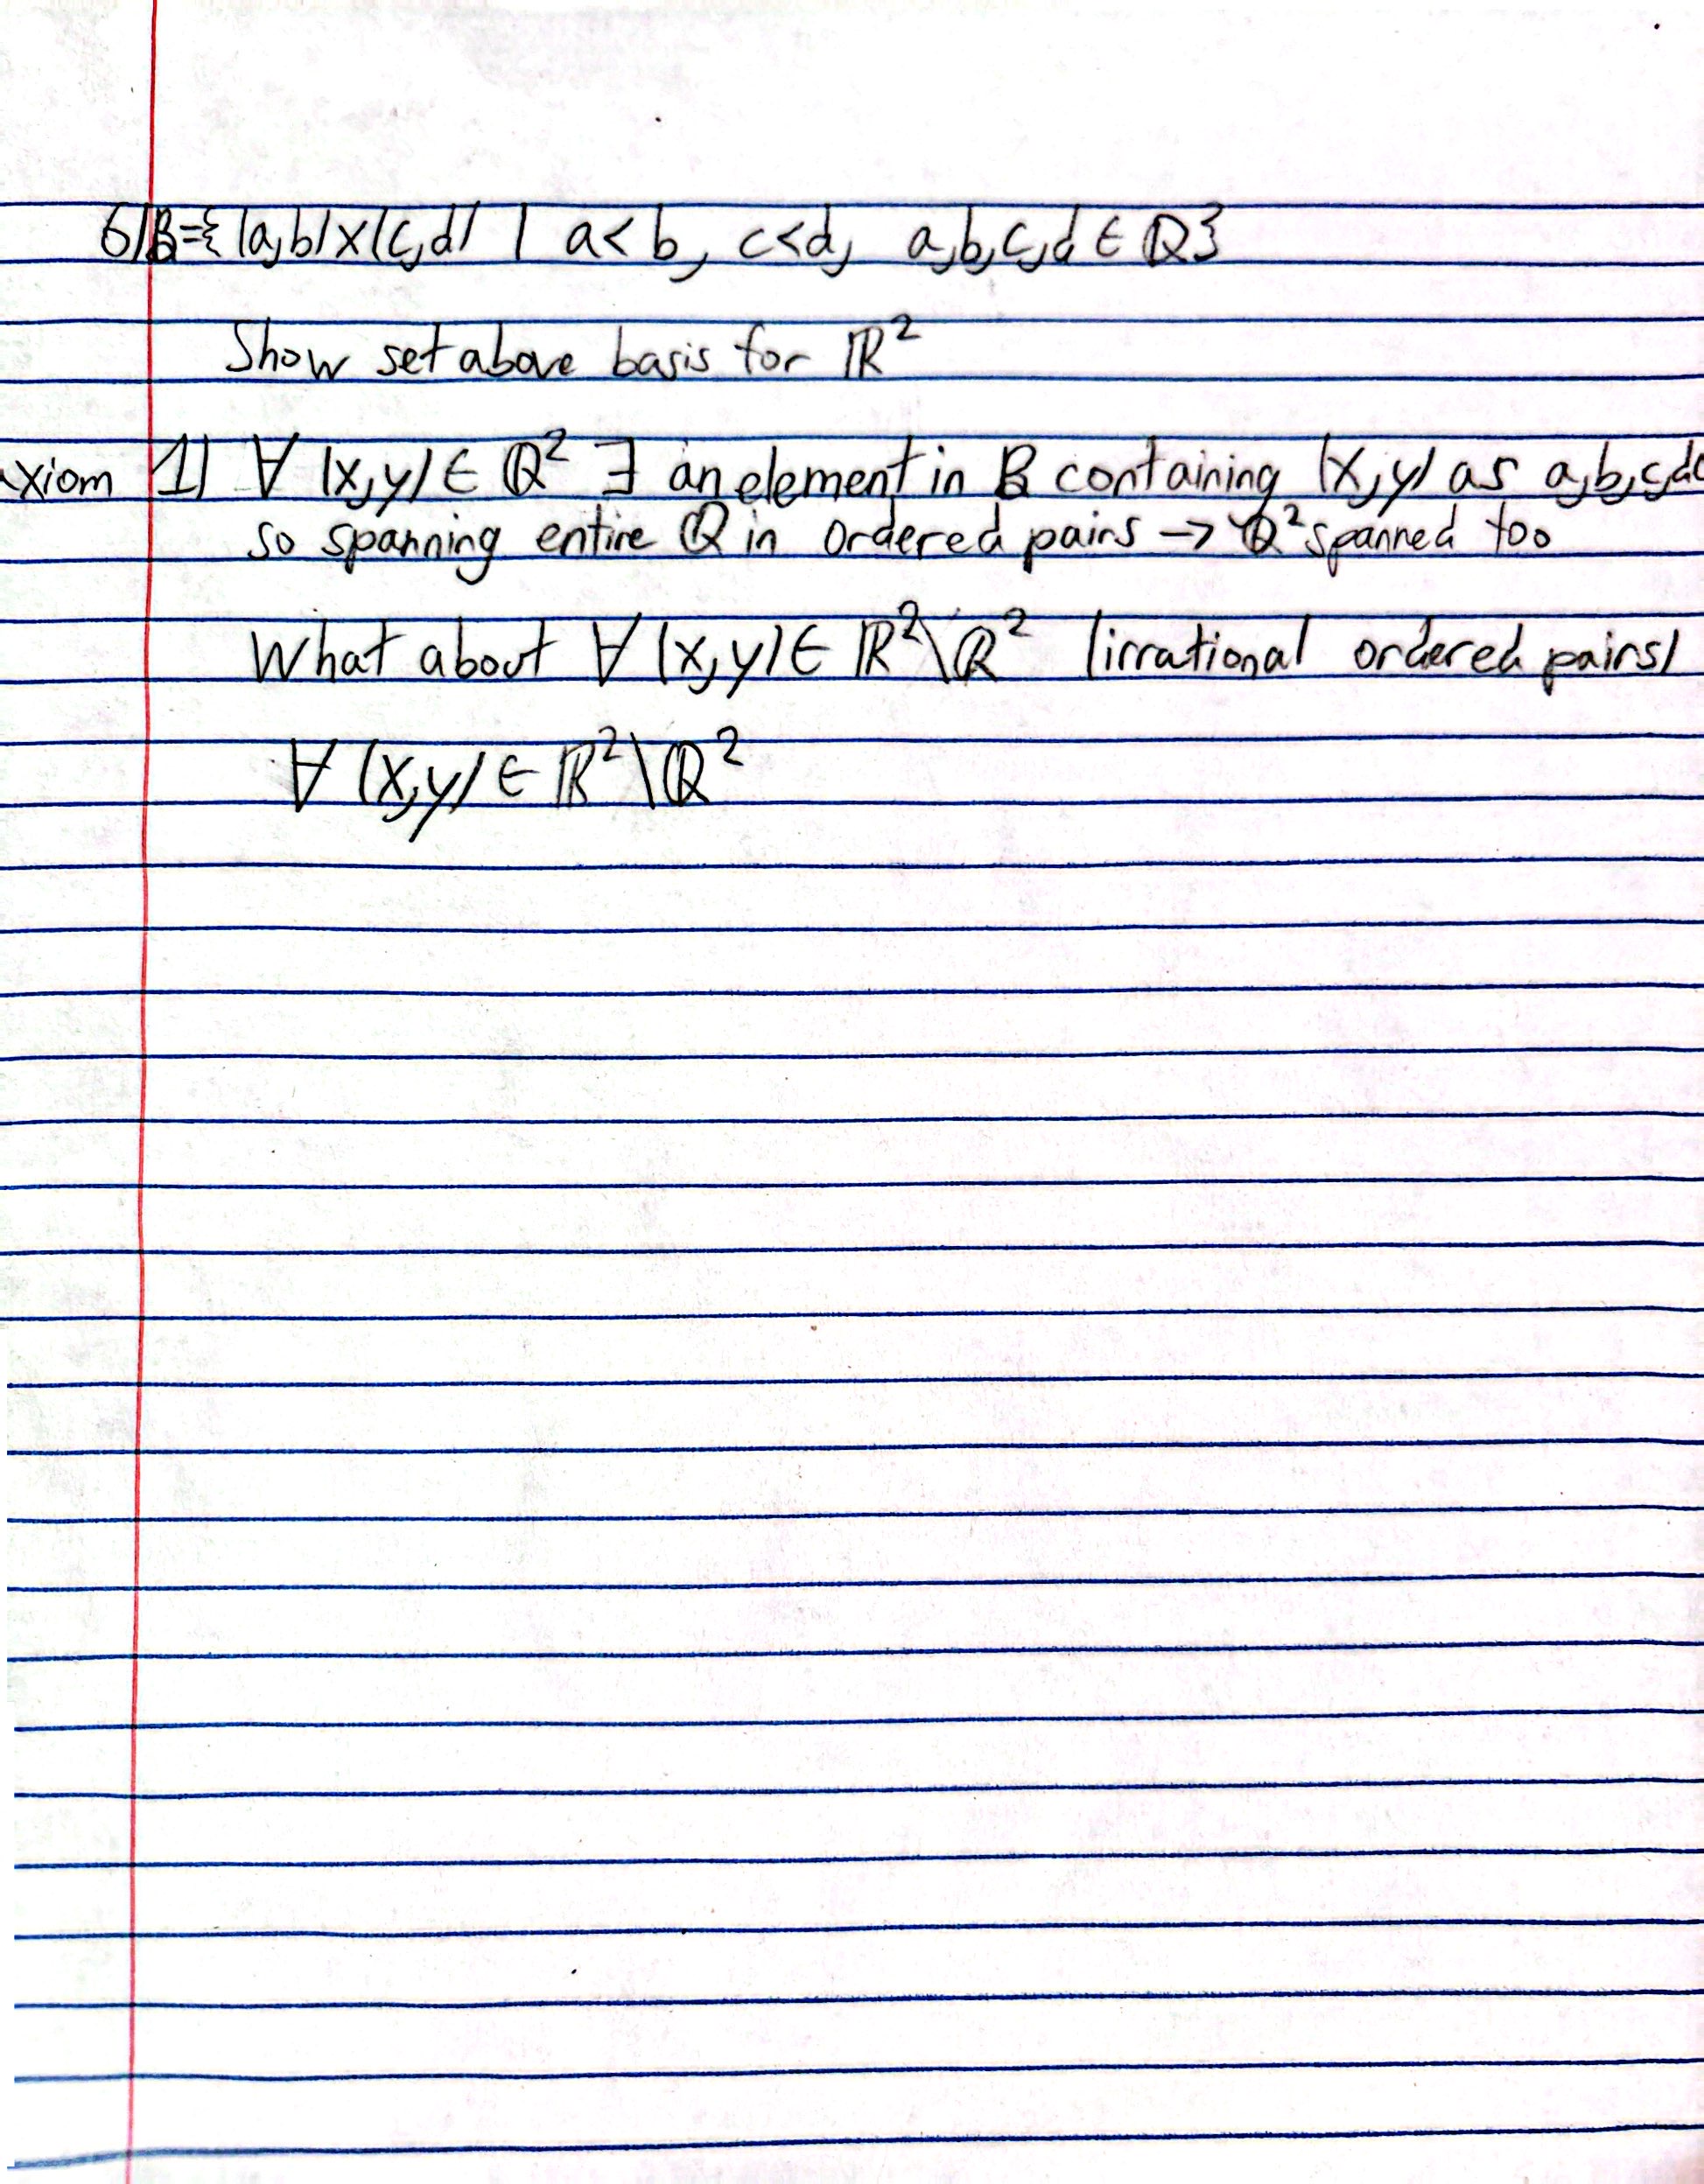 6) B={(a,b)x(c,d) | a<b, c<d, a,b,c,d ∈ ℚ}
Show set above basis for ℝ²
xiom 1) ∀ (x,y) ∈ ℚ² ∃ an element in B containing (x,y) as a,b,c,d
so spanning entire ℚ in ordered pairs → ℚ² spanned too
What about ∀ (x,y) ∈ ℝ²\ℚ² (irrational ordered pairs)
∀ (x,y) ∈ ℝ²\ℚ²